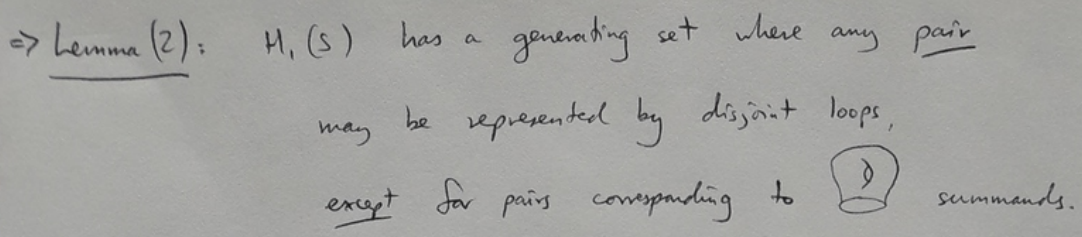 => Lemma (2): H₁(S) has a generating set where any pair
may be represented by disjoint loops,
except for pairs corresponding to summands.